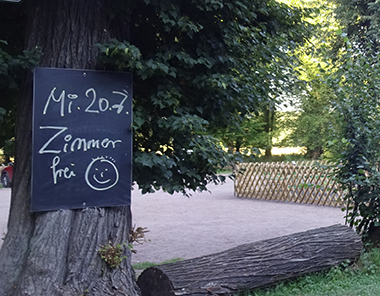 Mi. 20.7.
Zimmer
frei